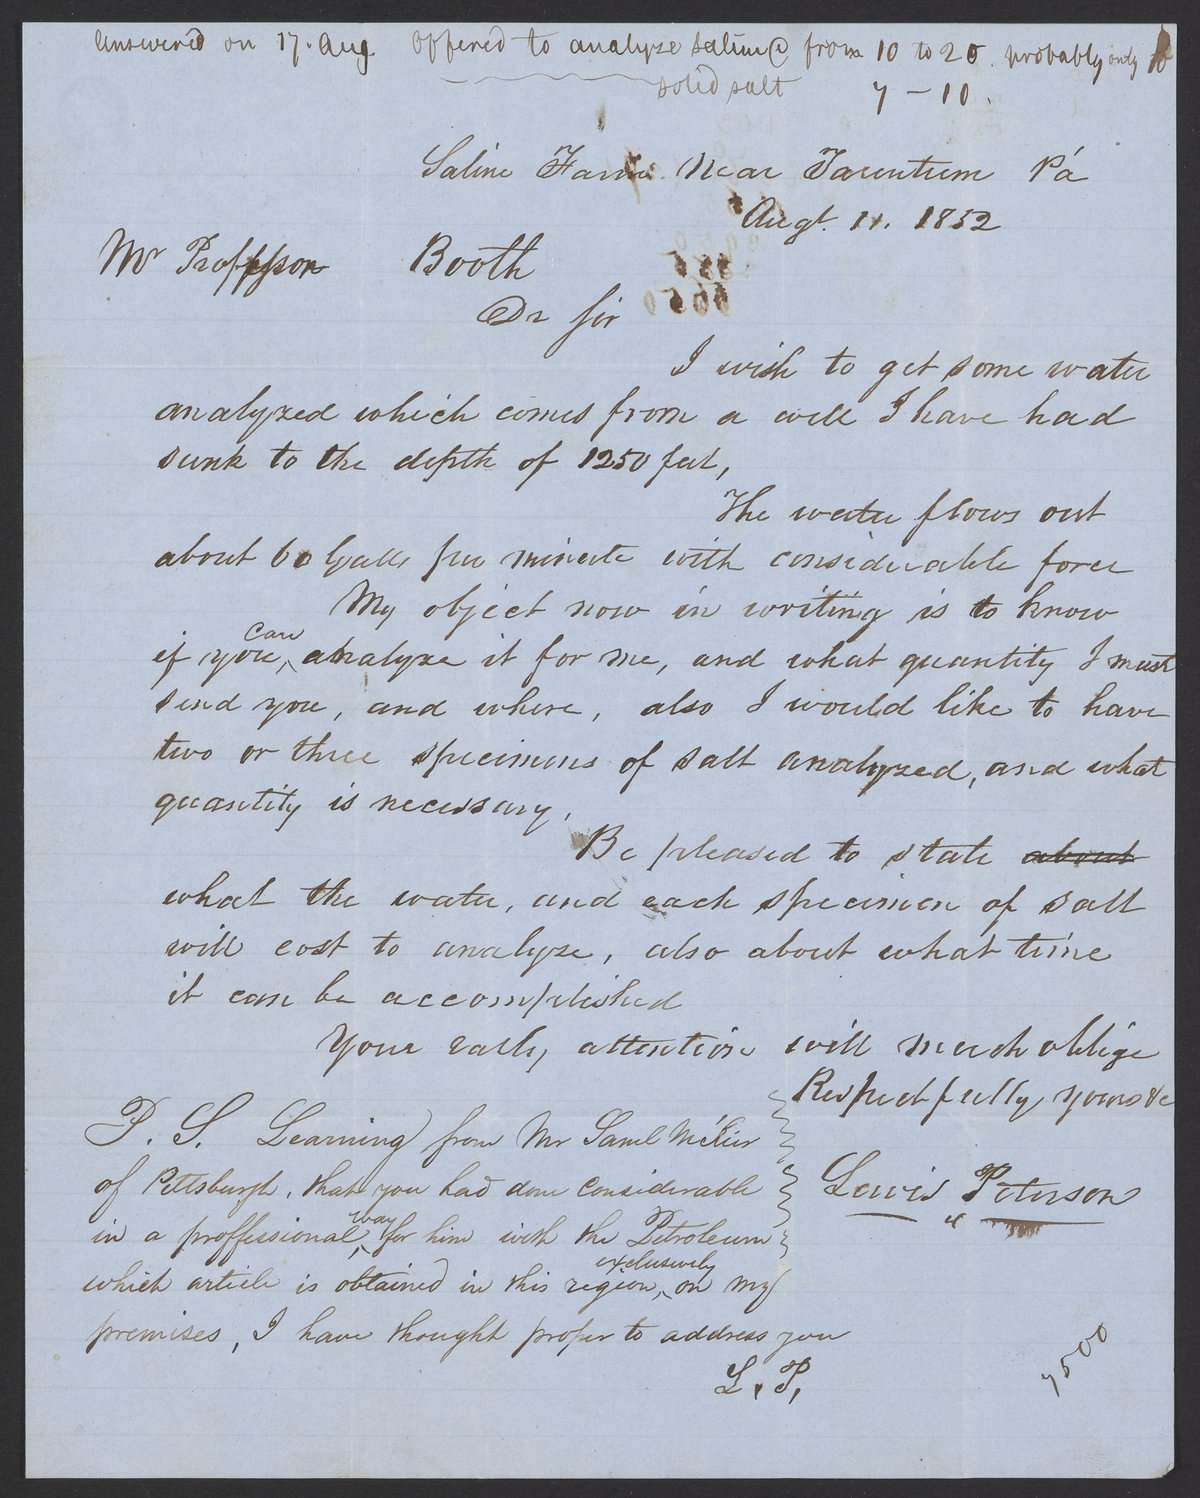 answered on 17. Aug. offered to analyze saline @ from 10 to 20. probably only 10
solid salt 7 – 10.
Saline Farm Near Tarentum Pa
Augt. 11. 1852
Mr Proffessor Booth
Dr Sir
I wish to get some water
analyzed which comes from a well I have had
sunk to the depth of 1250 feet,
The water flows out
about 60 Galls per minute with considerable force
My object now in writing is to know
if you can analyze it for me, and what quantity I must
send you, and where, also I would like to have
two or three specimens of salt analyzed, and what
quantity is necessary,
Be pleased to state about
what the water, and each specimen of salt
will cost to analyze, also about what time
it can be accomplished
Your early attention will much oblige
Respectfully yours &c
Lewis Peterson
P. S. Learning from Mr Saml McKier
of Pittsburgh, that you had done considerable
in a proffessional way for him with the Petroleum
which article is obtained in this region, exclusively on my
premises, I have thought proper to address you
L. P.
7500